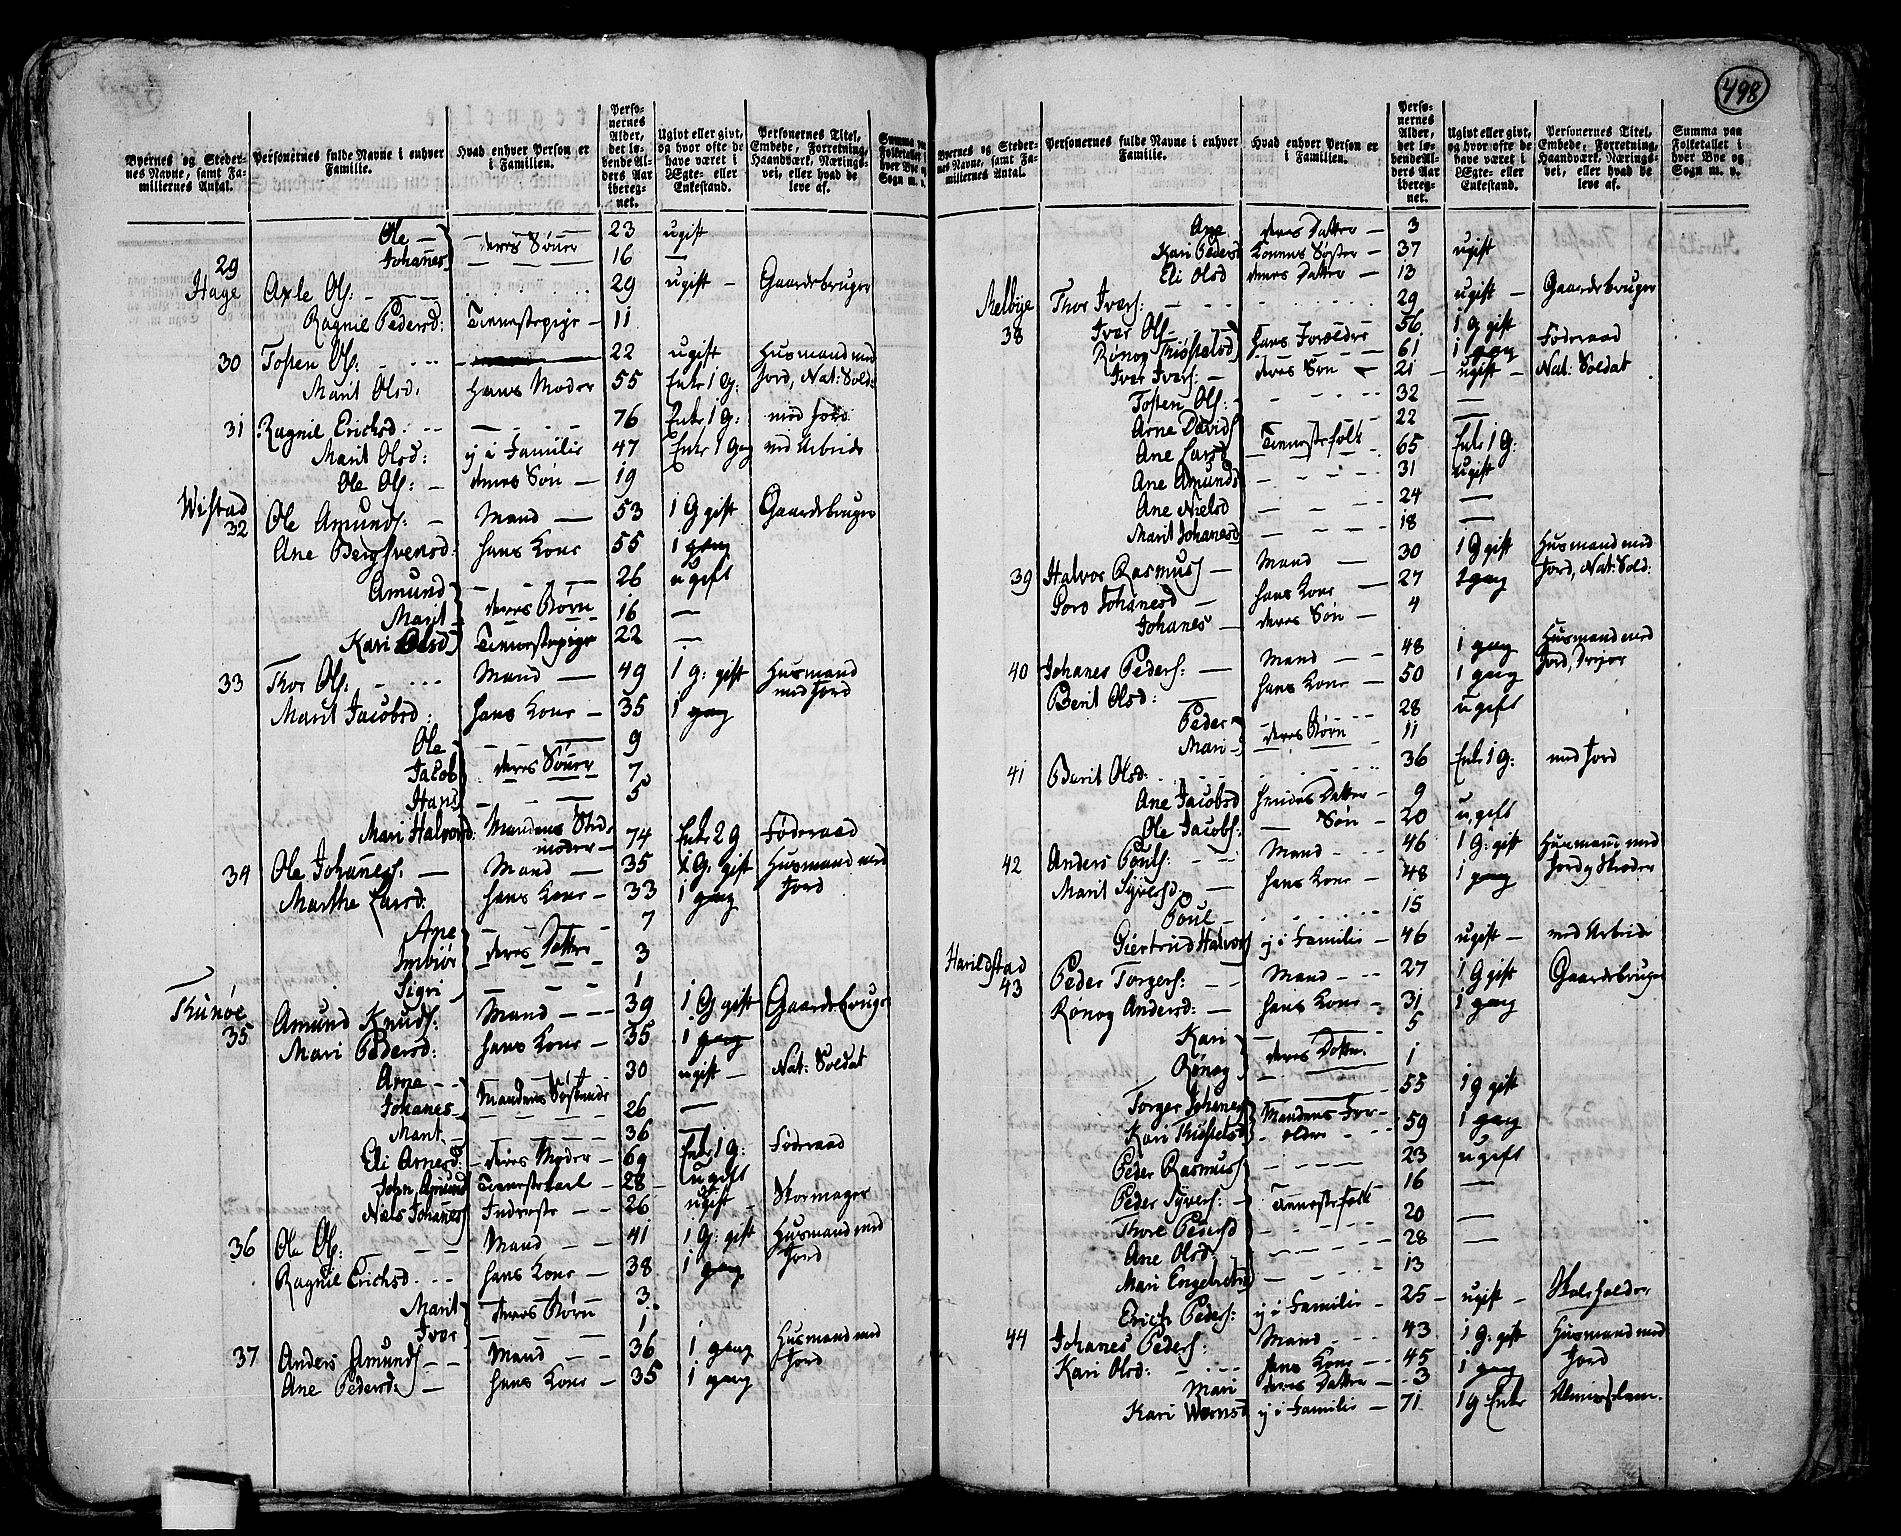 498
Byernes og Steder-
nes Navne, samt Fa-
miliernes Antal.
Personernes fulde Navne i enhver
Familie.
Hvad enhver Person er
i Familien.
Perso-
nernes
Alder,
det lø-
bende Al-
ders Aar
ibereg-
net.
Ugivt eller givt,
og hvor ofte de
have været i
Egte- eller
Enkestand.
Personernes Titel,
Embede, Forretning,
Haandværk, Nærings-
vei, eller hvad de
leve af.
Summa paa
Folketallet i
hver Bye og
Sogn m. v.
Ole — deres Sönner 23 ugift
Johannes 16 —
29
Hage Axle Ols: 29 ugift — Gaardebruger
Ragnil Pedersd: Tienestepige — 11
30 Tosten Ols: 22 ugift Husmand med
Marit Olsd: hans Moder 55 Enke 1 G: Jord, Nat: Sold:
31 Ragnil Erichsd. 76 Enke 1 G: med Jord
Marit Olsd: ej i Familie 47 Enke 1 Gang ved Arbeide
Ole Ols: — deres Sön — 19
Wistad
32 Ole Amunds: — Mand — 53 1 G gift Gaardebruger
Ane Bergsvensd: hans Kone 55 1 gang
Amund 26 ugift
Marit deres Börn 16 —
Kari Olsd Tienestepige 22 —
33 Thor Ols: Mand — 49 1 G: gift Husmand
med Jord
Marit Jacobsd: hans Kone — 35 1 gang
Ole 9
Jacob deres Sönner 7
Hans 5
Mari Halvorsd: Mandens Stif-
moder — 74 Enke 2 g Föderaad
34 Ole Johannes: — Mand — 35 1 G: gift Husmand med
Jord
Marthe Larsd: hans Kone — 33 1 gang
Ane 7
Imbiör deres Dottre 3
Sigri 1
Thunöe
35 Amund Knuds: Mand 39 1 G gift Gaardebruger
Mari Pedersd: hans Kone — 35 1 gang
Arne 30 ugift — Nat: Soldat
Johanes Mandens Söskende 26 —
Marit 36 —
Eli Arnesd: deres Moder — 69 Enke 1 g: Föderaad
John Amunds Tienestekarl — 28 ugift
Niels Johannes Inderste 26 ugift — Skomager
36 Ole Ols: Mand 41 1 G: gift Husmand med
Jord
Ragnil Erichsd. hans Kone — 38 1 gang
Marit deres Börn 3
Iver 1
37 Anders Amunds — Mand 36 1 gang Husmand med
Jord
Ane Pedersd: — hans Kone — 35 1 gang
Byernes og Steder-
nes Navne, samt Fa-
miliernes Antal.
Personernes fulde Navne i enhver
Familie.
Hvad enhver Person er
i Familien.
Perso-
nernes
Alder,
det lø-
bende Al-
ders Aar
ibereg-
net.
Ugivt eller givt,
og hvor ofte de
have været i
Egte- eller
Enkestand.
Personernes Titel,
Embede, Forretning,
Haandværk, Nærings-
vei, eller hvad de
leve af.
Summa paa
Folketallet i
hver Bye og
Sogn m. v.
Ane deres Datter — 3
Kari Pedersd Konens Söster — 37 ugift
Eli Olsd deres Datter — 13
Melbye Thor Ivers: 29 ugift — Gaardebruger
38 Iver Ols — hans Forældre 56 1 g gift Föderaad
Rönog Thostelsd 61 1 gang
Iver Ivers: — deres Sön — 21 — ugift — Nat: Soldat
Tosten Ols: 32 —
Arne Davids 22 —
Ane Larsd Tienestefolk 65 Enke 1 G:
Ane Amunds 31 ugift
Ane Nielsd 24 —
Marit Johanesd 18 —
39 Halvor Rasmuss — Mand — 30 1 G gift Husmand med
Goro Johanesd — hans Kone — 27 1 gang Jord, Nat: Sold:
Johanes — deres Sön — 4
40 Johanes Peders: — Mand — 48 1 gang Husmand med
Berit Olsd: — hans Kone — 50 1 gang
Peder 28 ugift
Mari deres Börn 11
41 Berit Olsd. 36 Enke 1 G: med Jord
Ane Jacobsd hendes Datter — 9
Ole Jacobs: — Sön — 20 ugift
42 Anders Pouls: Mand 46 1 G: gift Husmand med
Marit Syversd. — hans Kone — 48 1 gang Jord og Skræder
Poul — 15
Giertrud Halvors ej i Familie — 46 ugift — ved Arbeide
Harildstad
43 Peder Torgers: Mand 27 1 G gift Gaardebruger
Rönog Andersd: — hans Kone — 31 1 gang
Kari 5
Rönog deres Dottre 1
Torger Johanes Mandens For- 55 1 g gift
Kari Thostelsd ældre 59 1 gang
Peder Rasmuss 23 ugift
Peder Syvers: — Tienestefolk 16 —
Thore Pedersd 20 —
Ane Olsd: 28 —
Mari Engebretsd 13
Erich Peders: ej i Familie — 25 — ugift — Skoleholder
44 Johanes Peders: Mand 43 1 G: gift Husmand med
Kari Olsd: hans Kone — 45 1 gang Jord
Mari deres Datter — 3
Kari ej i Familie — 71 1 g Enke Almisselem.